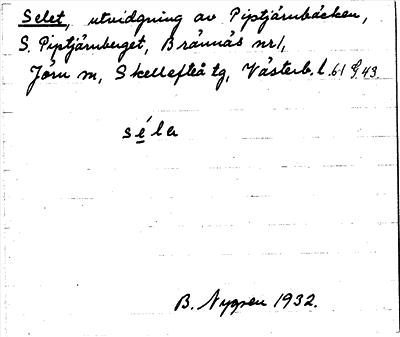 Selet, utvidgning av Piptjärnbäcken,
S. Piptjärnberget, Brännäs nr 1,
Jörn sn, Skellefteå tg, Västerb. l. 61 43.
séla
B. Nygren 1932.